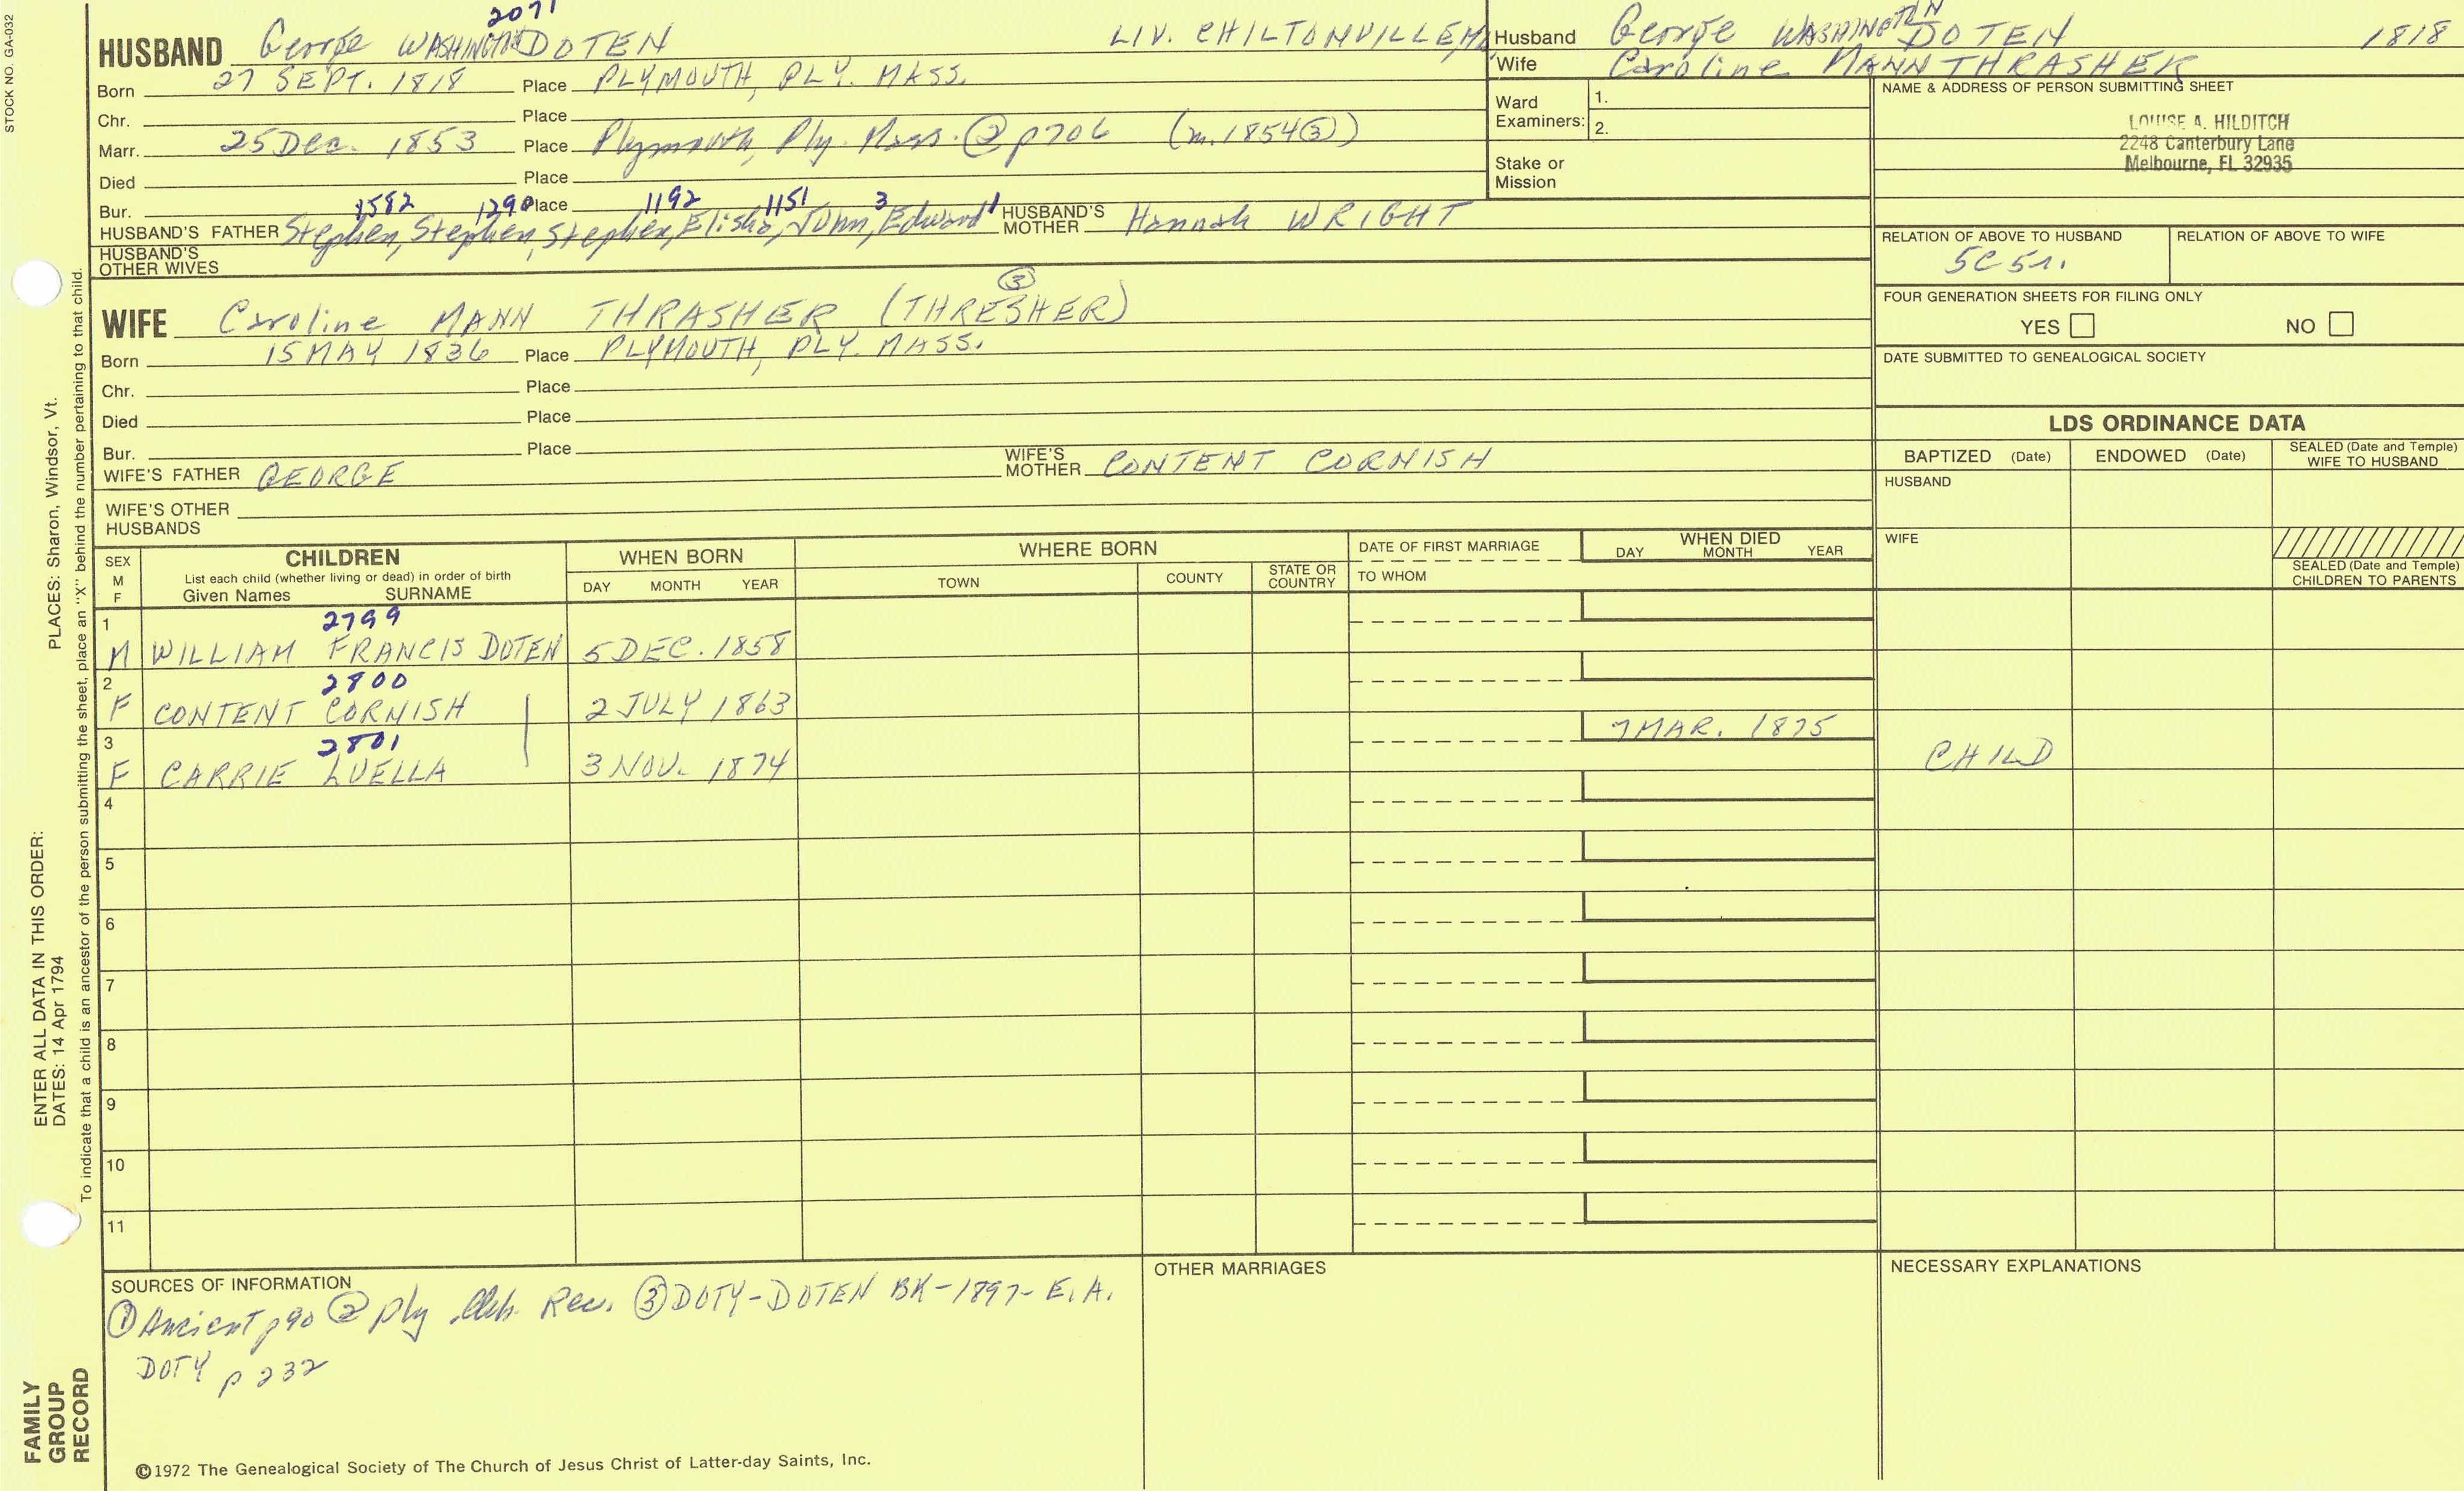 STOCK NO. GA-032
2071
HUSBAND George WASHINGTON DOTEN LIV. CHILTONVILLE, MA
Born 27 SEPT. 1818 Place PLYMOUTH, PLY. MASS.
Chr. Place
Marr. 25 Dec. 1853 Place Plymouth, Ply. Mass. ② p706 (m. 1854 ③)
Died Place
Bur. Place
1582 1290 1192 1151 3 1
HUSBAND'S FATHER Stephen, Stephen, Stephen, Elisha, John, Edward HUSBAND'S MOTHER Hannah WRIGHT
HUSBAND'S OTHER WIVES
③
WIFE Caroline MANN THRASHER (THRESHER)
Born 15 MAY 1836 Place PLYMOUTH, PLY. MASS.
Chr. Place
Died Place
Bur. Place
WIFE'S FATHER GEORGE WIFE'S MOTHER CONTENT CORNISH
WIFE'S OTHER HUSBANDS
Husband George WASHINGTON DOTEN 1818
Wife Caroline MANN THRASHER
Ward Examiners: 1.
2.
Stake or Mission
NAME & ADDRESS OF PERSON SUBMITTING SHEET
LOUISE A. HILDITCH
2248 Canterbury Lane
Melbourne, FL 32935
RELATION OF ABOVE TO HUSBAND RELATION OF ABOVE TO WIFE
5C 5r.
FOUR GENERATION SHEETS FOR FILING ONLY
YES NO
DATE SUBMITTED TO GENEALOGICAL SOCIETY
LDS ORDINANCE DATA
BAPTIZED (Date) ENDOWED (Date) SEALED (Date and Temple) WIFE TO HUSBAND
HUSBAND
WIFE
SEALED (Date and Temple) CHILDREN TO PARENTS
SEX M F CHILDREN WHEN BORN WHERE BORN DATE OF FIRST MARRIAGE WHEN DIED
List each child (whether living or dead) in order of birth
Given Names SURNAME DAY MONTH YEAR TOWN COUNTY STATE OR COUNTRY TO WHOM DAY MONTH YEAR
1 2799
M WILLIAM FRANCIS DOTEN 5 DEC. 1858
2 2800
F CONTENT CORNISH 2 JULY 1863
3 2801 7 MAR. 1875
F CARRIE LUELLA 3 NOV. 1874 CHILD
4
5
6
7
8
9
10
11
SOURCES OF INFORMATION
① Ancient p90 ② Ply Rec. ③ DOTY-DOTEN BK-1897- E.A.
DOTY p 232
OTHER MARRIAGES
NECESSARY EXPLANATIONS
©1972 The Genealogical Society of The Church of Jesus Christ of Latter-day Saints, Inc.
FAMILY GROUP RECORD
ENTER ALL DATA IN THIS ORDER:
DATES: 14 Apr 1794
PLACES: Sharon, Windsor, Vt.
To indicate that a child is an ancestor of the person submitting the sheet, place an "X" behind the number pertaining to that child.